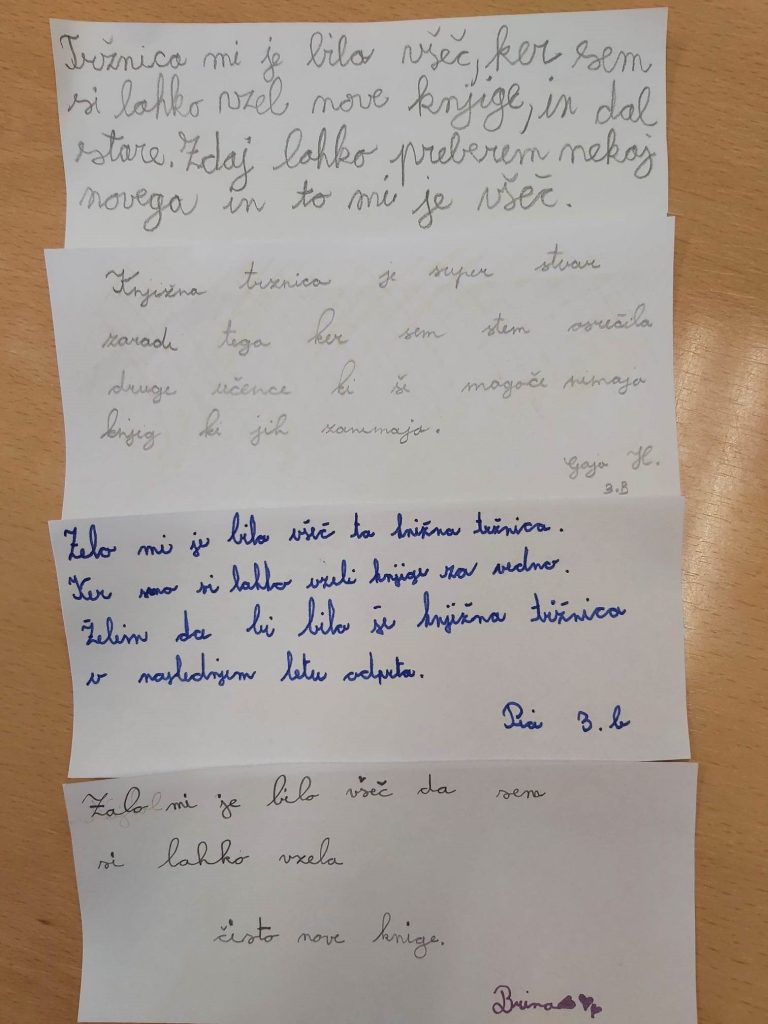 Tržnica mi je bila všeč, ker sem
si lahko vzel nove knjige, in dal
stare. Zdaj lahko preberem nekaj
novega in to mi je všeč.
Knjižna tržnica je super stvar
zaradi tega ker sem stem osrečila
druge učence ki še mogoče nimajo
knjig ki jih zanimajo.
Gaja H.
3.B
Zelo mi je bila všeč ta knižna tržnica.
Ker smo si lahko vzeli knjige za vedno.
Želim da bi bila še knjižna tržnica
v naslednjem letu odprta.
Pia 3. b
Zalo mi je bilo všeč da sem
si lahko vzela
čisto nove knige.
Brina